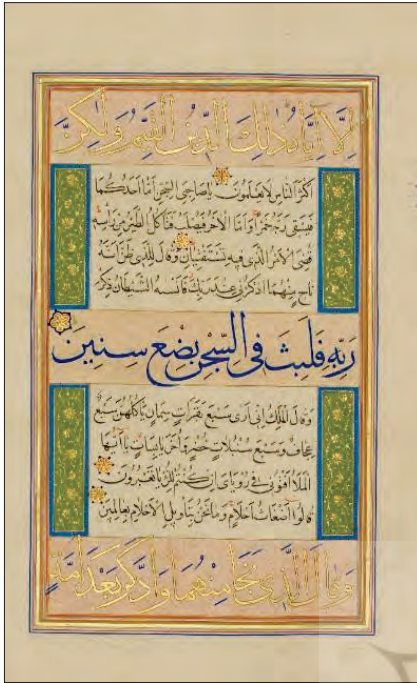 إِلَّا إِيَّاهُ ذَٰلِكَ الدِّينُ الْقَيِّمُ وَلَٰكِنَّ
أَكْثَرَ النَّاسِ لَا يَعْلَمُونَ يَا صَاحِبَيِ السِّجْنِ أَمَّا أَحَدُكُمَا
فَيَسْقِي رَبَّهُ خَمْرًا وَأَمَّا الْآخَرُ فَيُصْلَبُ فَتَأْكُلُ الطَّيْرُ مِنْ رَأْسِهِ
قُضِيَ الْأَمْرُ الَّذِي فِيهِ تَسْتَفْتِيَانِ وَقَالَ لِلَّذِي ظَنَّ أَنَّهُ
نَاجٍ مِنْهُمَا اذْكُرْنِي عِنْدَ رَبِّكَ فَأَنْسَاهُ الشَّيْطَانُ ذِكْرَ
رَبِّهِ فَلَبِثَ فِي السِّجْنِ بِضْعَ سِنِينَ
وَقَالَ الْمَلِكُ إِنِّي أَرَىٰ سَبْعَ بَقَرَاتٍ سِمَانٍ يَأْكُلُهُنَّ سَبْعٌ
عِجَافٌ وَسَبْعَ سُنْبُلَاتٍ خُضْرٍ وَأُخَرَ يَابِسَاتٍ يَا أَيُّهَا
الْمَلَأُ أَفْتُونِي فِي رُؤْيَايَ إِنْ كُنْتُمْ لِلرُّؤْيَا تَعْبُرُونَ
قَالُوا أَضْغَاثُ أَحْلَامٍ وَمَا نَحْنُ بِتَأْوِيلِ الْأَحْلَامِ بِعَالِمِينَ
وَقَالَ الَّذِي نَجَا مِنْهُمَا وَادَّكَرَ بَعْدَ أُمَّةٍ